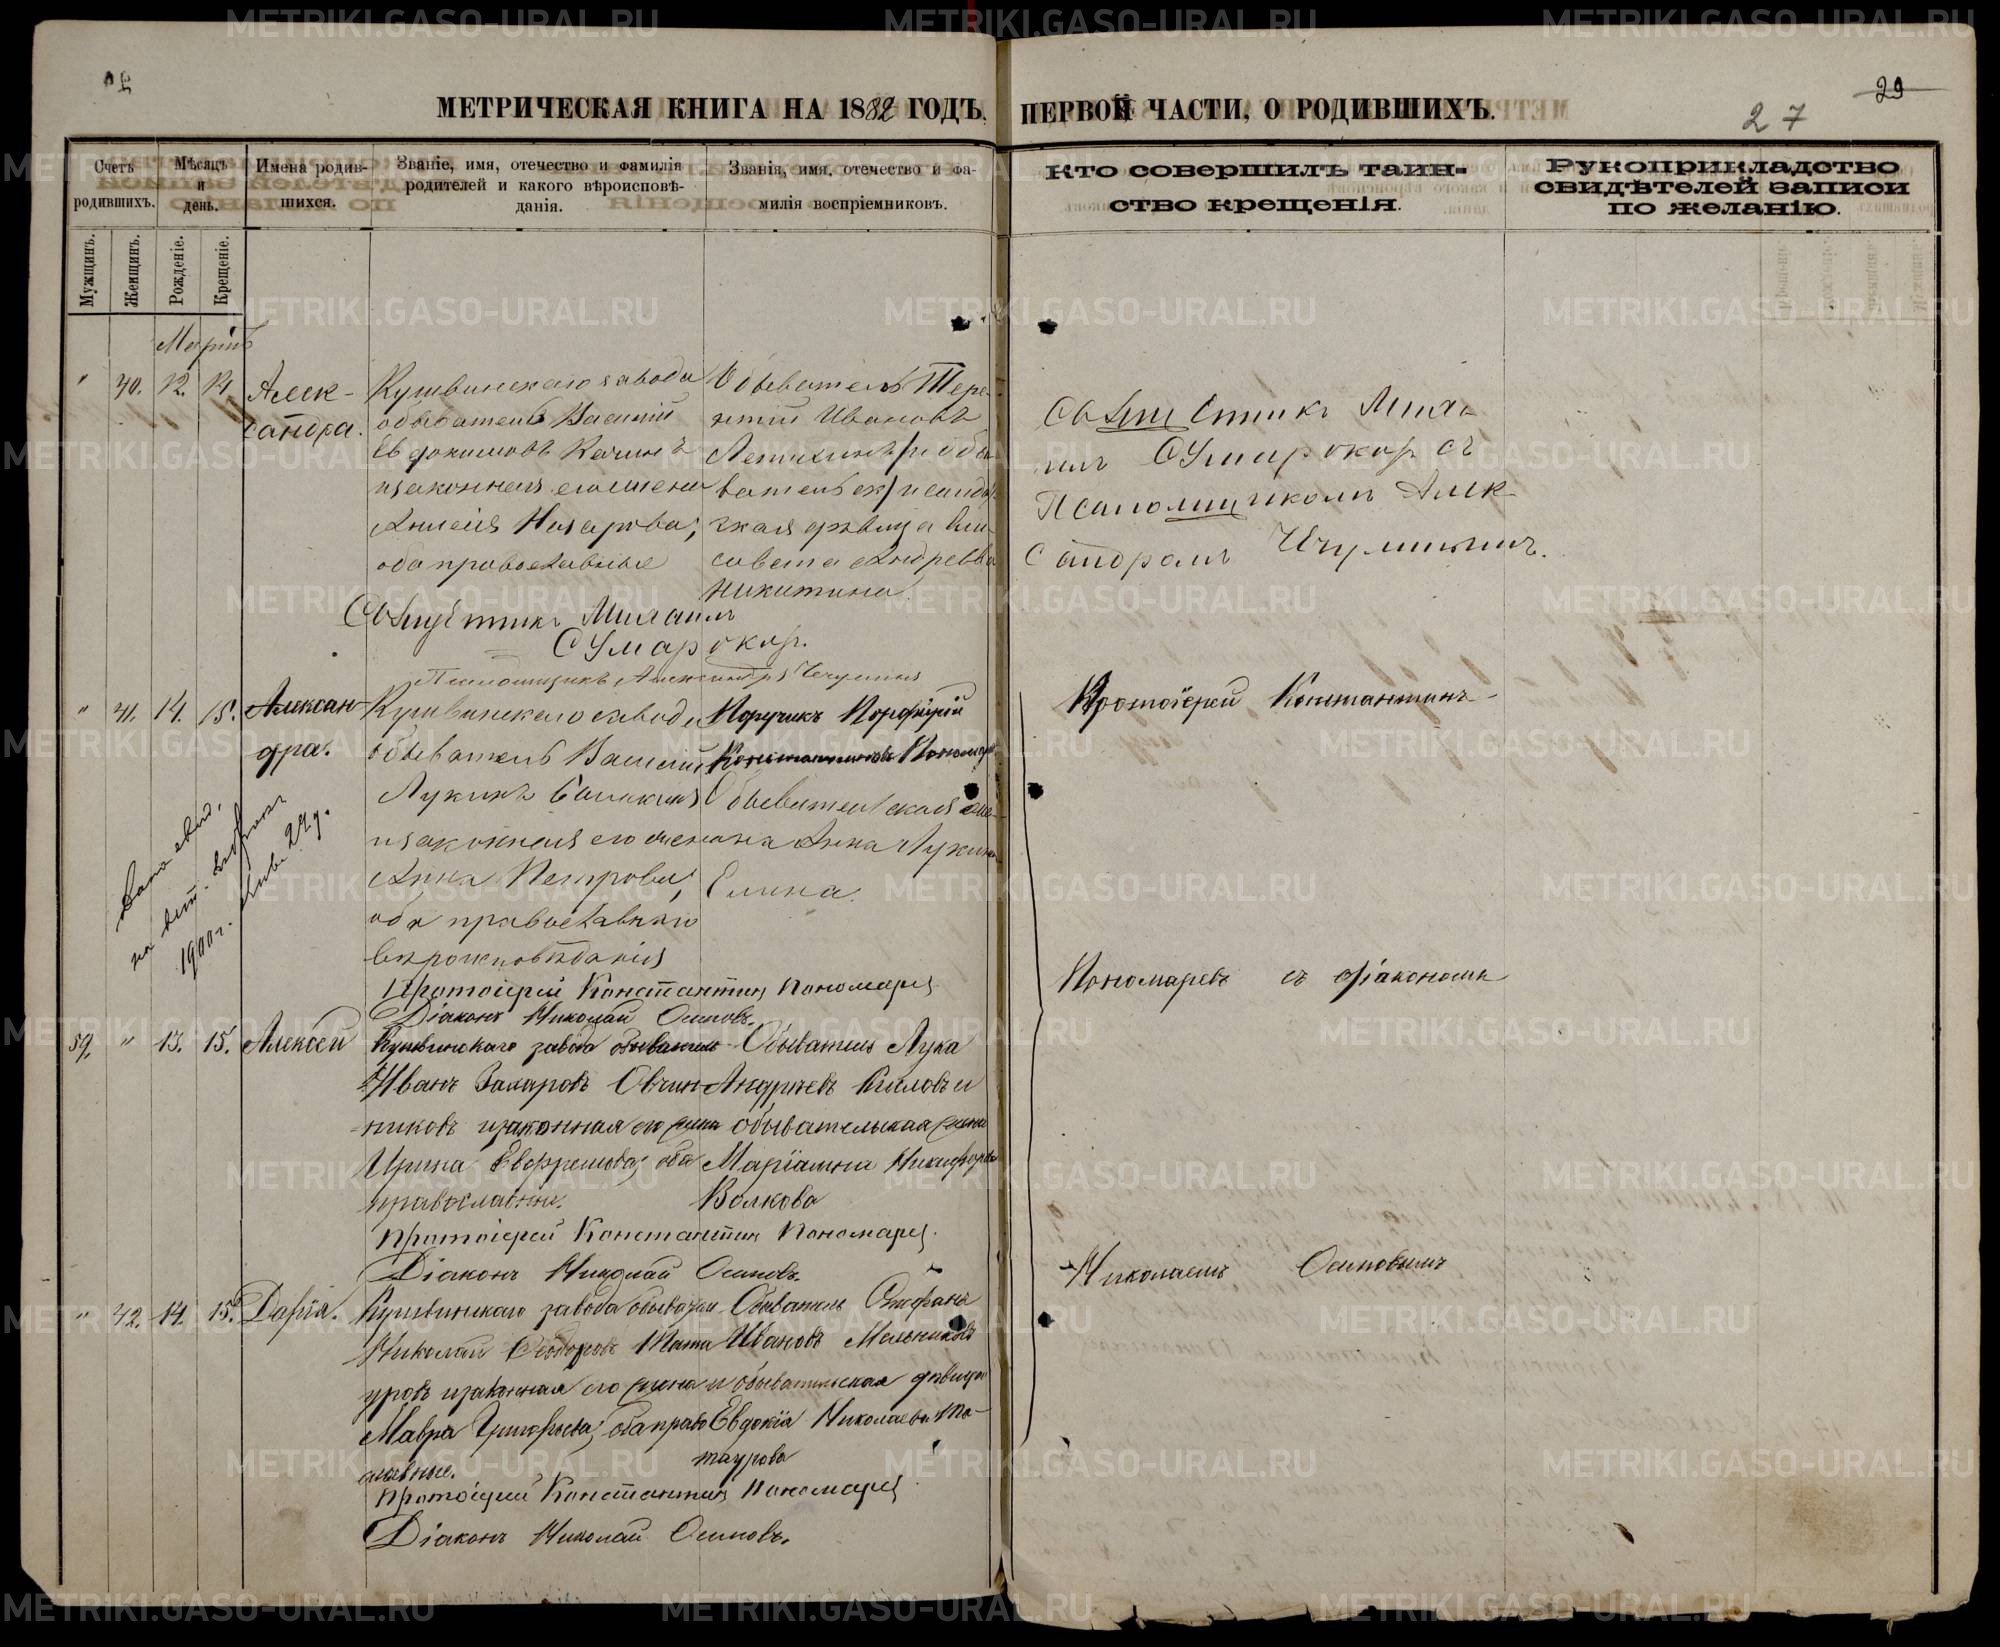 МЕТРИЧЕСКАЯ КНИГА НА 1882 ГОДЪ, ПЕРВОЙ ЧАСТИ, О РОДИВШИХЪ.
29
27
Счетъ родившихъ.
Мужчинъ.
Женщинъ.
Мѣсяцъ и день.
Рожденіе.
Крещеніе.
Имена родив-
шихся.
Званіе, имя, отечество и фамилія
родителей и какого вѣроисповѣ-
данія.
Званія, имя, отечество и фа-
милія воспріемниковъ.
Кто совершилъ таин-
ство крещенія.
Рукоприкладство
свидѣтелей записи
по желанію.
Мартъ
" 40. 12. 14. Алек-
сандра.
Кушвинскаго завода
обыватель Василій
Евдокимовъ Качинъ
и законная его жена
Назарова;
оба православные
Обыватель Тере-
нтій Ивановъ
и обы-
вательск/
дѣвица Ели-
савета Андреева
Никитина
Священникъ Михаилъ
Сумароковъ.
Псаломщикъ Александръ
Священникъ Миха-
илъ Сумароковъ съ
Псаломщикомъ Алек-
сандромъ
" 41. 14. 15. Алексан-
дра.
Кушвинскаго завода
обыватель Василій
Лукинъ
и законная его жена
Анна Петрова,
оба православнаго
вѣроисповѣданія
Поручикъ Порфирій
Константиновъ Пономар
Обывательская же-
на Анна Лукина
Елина.
Дано свид.
1900 г.
Протоіерей Константинъ Пономаревъ
Діаконъ Николай Осиповъ.
Протоіерей Константинъ
Пономаревъ съ діакономъ
Николаемъ Осиповымъ
39. " 13. 15. Алексѣй
Кушвинскаго завода обыватель
Иванъ Захаровъ Овчин-
никовъ и законная его жена
Ирина оба
православные.
Обыватель Лука
Андреевъ и
обывательская жена
Маріамна Никифорова
Волкова
Протоіерей Константинъ Пономаревъ.
Діаконъ Николай Осиповъ.
" 42. 14. 15. Дарія.
Кушвинскаго завода обыватель
Николай Ѳеодоровъ Тата-
уровъ и законная его жена
Мавра Григорьева; оба право-
славные.
Обыватель Стефанъ
Ивановъ Мельниковъ
и обывательская дѣвица
Евдокія Николаева Та-
таурова
Протоіерей Константинъ Пономаревъ
Діаконъ Николай Осиповъ.
METRIKI.GASO-URAL.RU